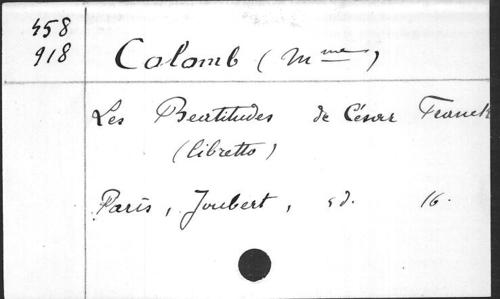 458
918
Colomb (Mme)
Les Beatitudes de César Franck
(libretto)
Paris, Joubert, sd. 16.